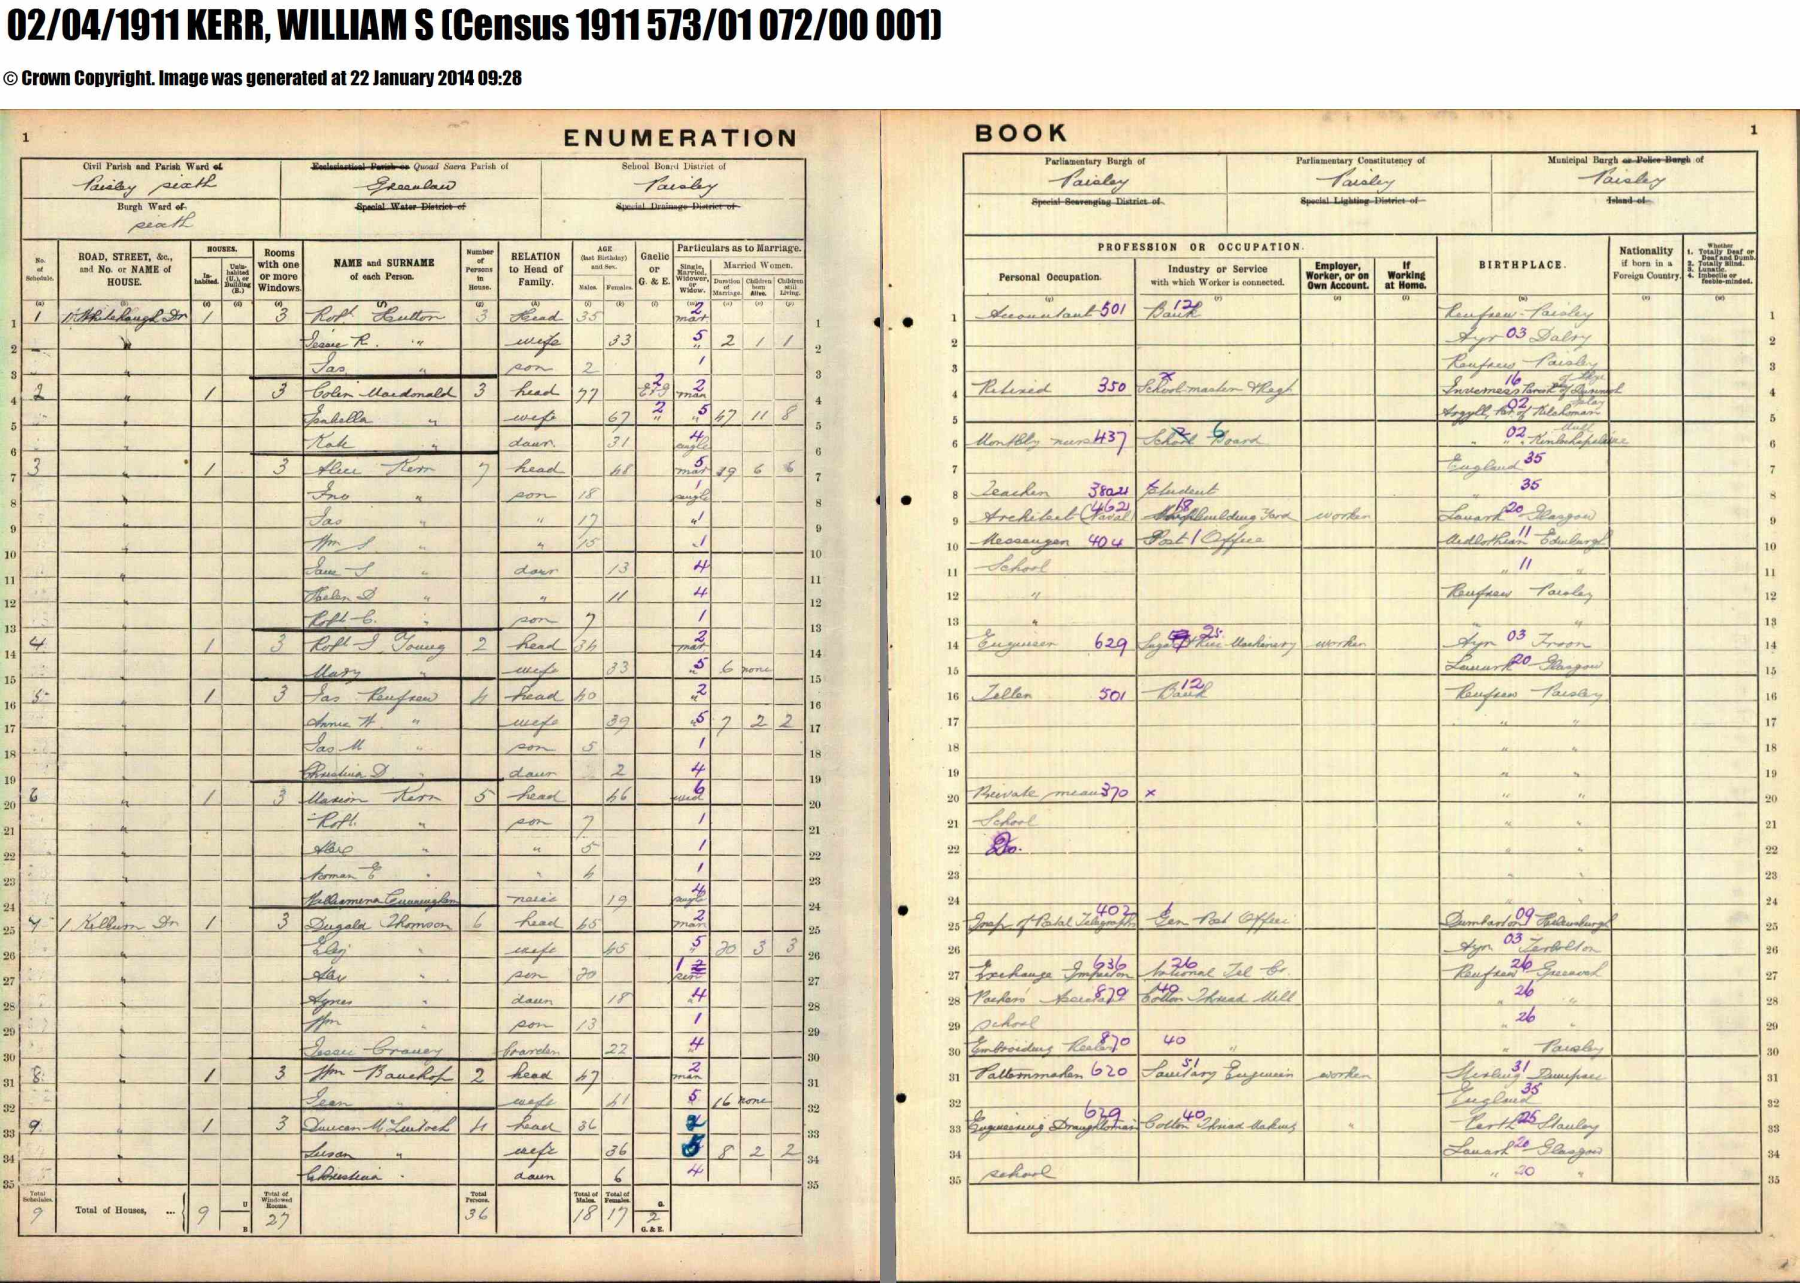 02/04/1911 KERR, WILLIAM S (Census 1911 573/01 072/00 001)
© Crown Copyright. Image was generated at 22 January 2014 09:28
1 ENUMERATION BOOK 1
Civil Parish and Parish Ward of Ecclesiastical Parish or Quoad Sacra Parish of School Board District of
Paisley Greenlaw Paisley
Burgh Ward of Special Water District of Special Drainage District of
Parliamentary Burgh of Parliamentary Constituency of Municipal Burgh or Police Burgh of
Paisley Paisley Paisley
Special Scavenging District of Special Lighting District of Island of
No. of Schedule. ROAD, STREET, &c., and No. or NAME of HOUSE. HOUSES. Inhabited. Uninhabited (U.), or Building (B.) Rooms with one or more Windows. NAME and SURNAME of each Person. Number of Persons in House. RELATION to Head of Family. AGE (last Birthday) and Sex. Males. Females. Gaelic or G. & E. Particulars as to Marriage. Single, Married, Widower, or Widow. Married Women. Duration of Marriage. Children born Alive. Children still Living.
PROFESSION OR OCCUPATION. Personal Occupation. Industry or Service with which Worker is connected. Employer, Worker, or on Own Account. If Working at Home. BIRTHPLACE. Nationality if born in a Foreign Country. Whether 1. Totally Deaf or Deaf and Dumb. 2. Totally Blind. 3. Lunatic. 4. Imbecile or feeble-minded.
1 11 Whitehaugh Dr 1 3 Robt Hutton 3 Head 35 2 mar Accountant 501 Bank 12 Renfrew Paisley
Jessie R. " wife 33 5 " 2 1 1 Ayr 03 Dalry
Jas " son 2 1 Renfrew Paisley
2 " 1 3 Colin Macdonald 3 head 77 G&E 2 2 mar Retired 350 Schoolmaster
Isabella " wife 67 " 2 5 " 47 11 8 Argyll, 02 Kilchoman
Kate " daur 31 4 single Monthly nurse 437 School Board 6 " 02
3 " 1 3 Alice Kerr 7 head 48 5 mar 19 6 6 England 35
Jno " son 18 1 single Teacher Student " 35
Jas " " 17 " 1 Architect (Naval) 462 Shipbuilding Yard 18 worker Lanark 20 Glasgow
Wm S " " 15 " 1 Messenger 404 Post Office 1 Midlothian 11 Edinburgh
Jane S " daur 13 4 School " 11 "
Helen D " " 11 4 " Renfrew Paisley
Robt C. " son 7 1 " " "
4 " 1 3 Robt J Young 2 head 34 2 mar Engineer 629 Machinery 25 worker Ayr 03 Troon
Mary " wife 33 5 " 6 none Lanark 20 Glasgow
5 " 1 3 Jas Renfrew 4 head 40 2 " Teller 501 Bank 12 Renfrew Paisley
Annie W " wife 39 5 " 7 2 2 " "
Jas M " son 5 1 " "
Christina D " daur 2 4 " "
6 " 1 3 Marion Kerr 5 head 46 6 wid Private means 370 x " "
Robt. " son 7 1 School " "
Alex " " 5 1 Do. " "
Norman E " " 4 1 " "
Williamina Cunningham neice 19 4 single " "
7 1 Kilburn Dr 1 3 Dugald Thomson 6 head 45 2 mar 402 Gen Post Office 1 Dumbarton 09 Helensburgh
" wife 45 5 " 20 3 3 Ayr 03 Tarbolton
Alex " son 20 1 Exchange 636 National Tel Co. 26 Renfrew 26 Greenock
Agnes " daur 18 4 " 879 Cotton Thread Mill 40 " 26 "
Wm " son 13 1 school " 26 "
Jessie boarder 22 4 " Embroidery 870 40 " " Paisley
8 " 1 3 Wm Bauchop 2 head 47 2 mar Patternmaker 620 Sanitary Engineer 51 worker Stirling 31
Jean " wife 41 5 " 16 none England 35
9 " 1 3 Duncan McLintock 4 head 36 2 Engineering Draughtsman 629 Cotton Thread Making 40 " Perth 25 Stanley
Susan " wife 36 5 8 2 2 Lanark 20 Glasgow
Christina " daur 6 4 school " 20 "
Total Schedules. 9 Total of Houses, ... 9 U B Total of Windowed Rooms. 27 Total Persons. 36 Total of Males. 18 Total of Females. 17 G. 2 G. & E.